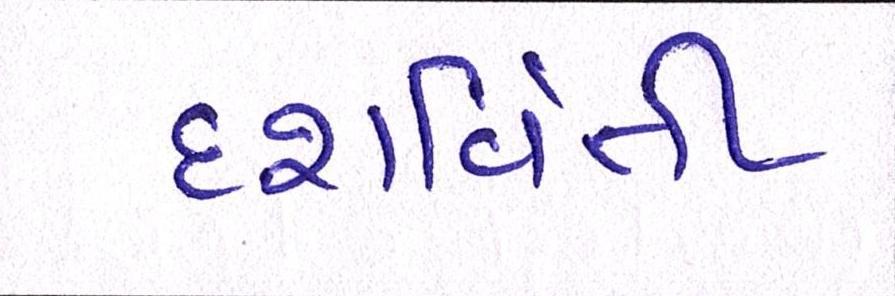 દશાર્વિતી